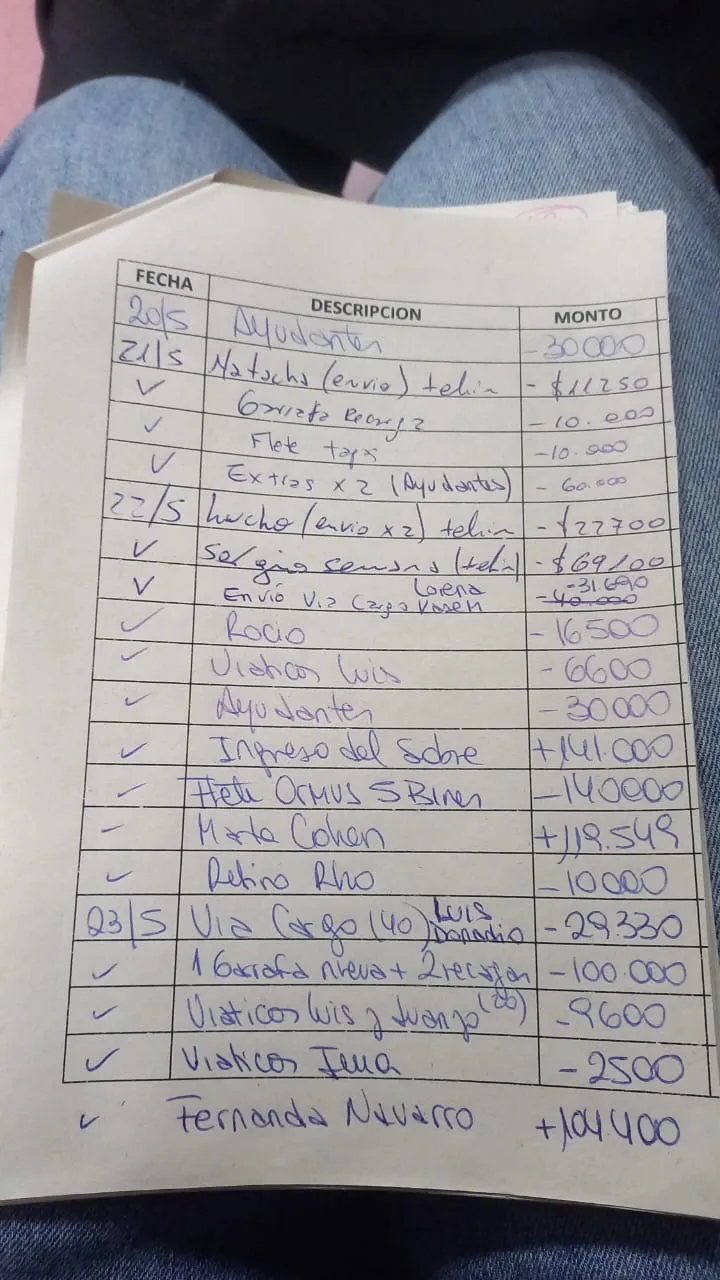 FECHA DESCRIPCION MONTO
20/5 Ayudantes -30000
21/5 Natacha (envio) tehin -$11250
✓ Garrafa Recarga -10.000
✓ Flete tapi -10.000
✓ Extras x 2 (Ayudantes) -60.000
22/5 Lucho (envio x2) tehin -$22700
✓ Sergio semana (tehin) -$69100
✓ Envió Via Cargo Lorena Vasen -31.690 -40.000
✓ Rocio -16500
✓ Viaticos Luis -6600
✓ Ayudantes -30000
✓ Ingreso del Sobre +141.000
✓ Flete Ormus S Bines -140000
✓ Marta Cohen +119.549
✓ Retiro Rho -10000
23/5 Via Cargo (40) Luis Donadio -29330
✓ 1 Garrafa nueva + 2 recargas -100.000
✓ Viaticos Luis y Juanjo -9600
✓ Viaticos Fema -2500
✓ Fernanda Navarro +104.400